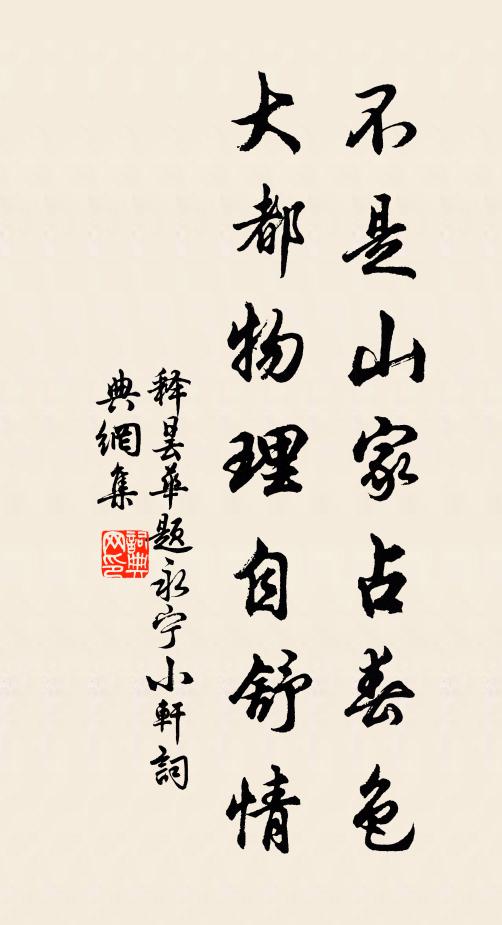 不是山家占春色
大都物理自舒情
释昙华题永宁小軒詞
典網集
詞典网印